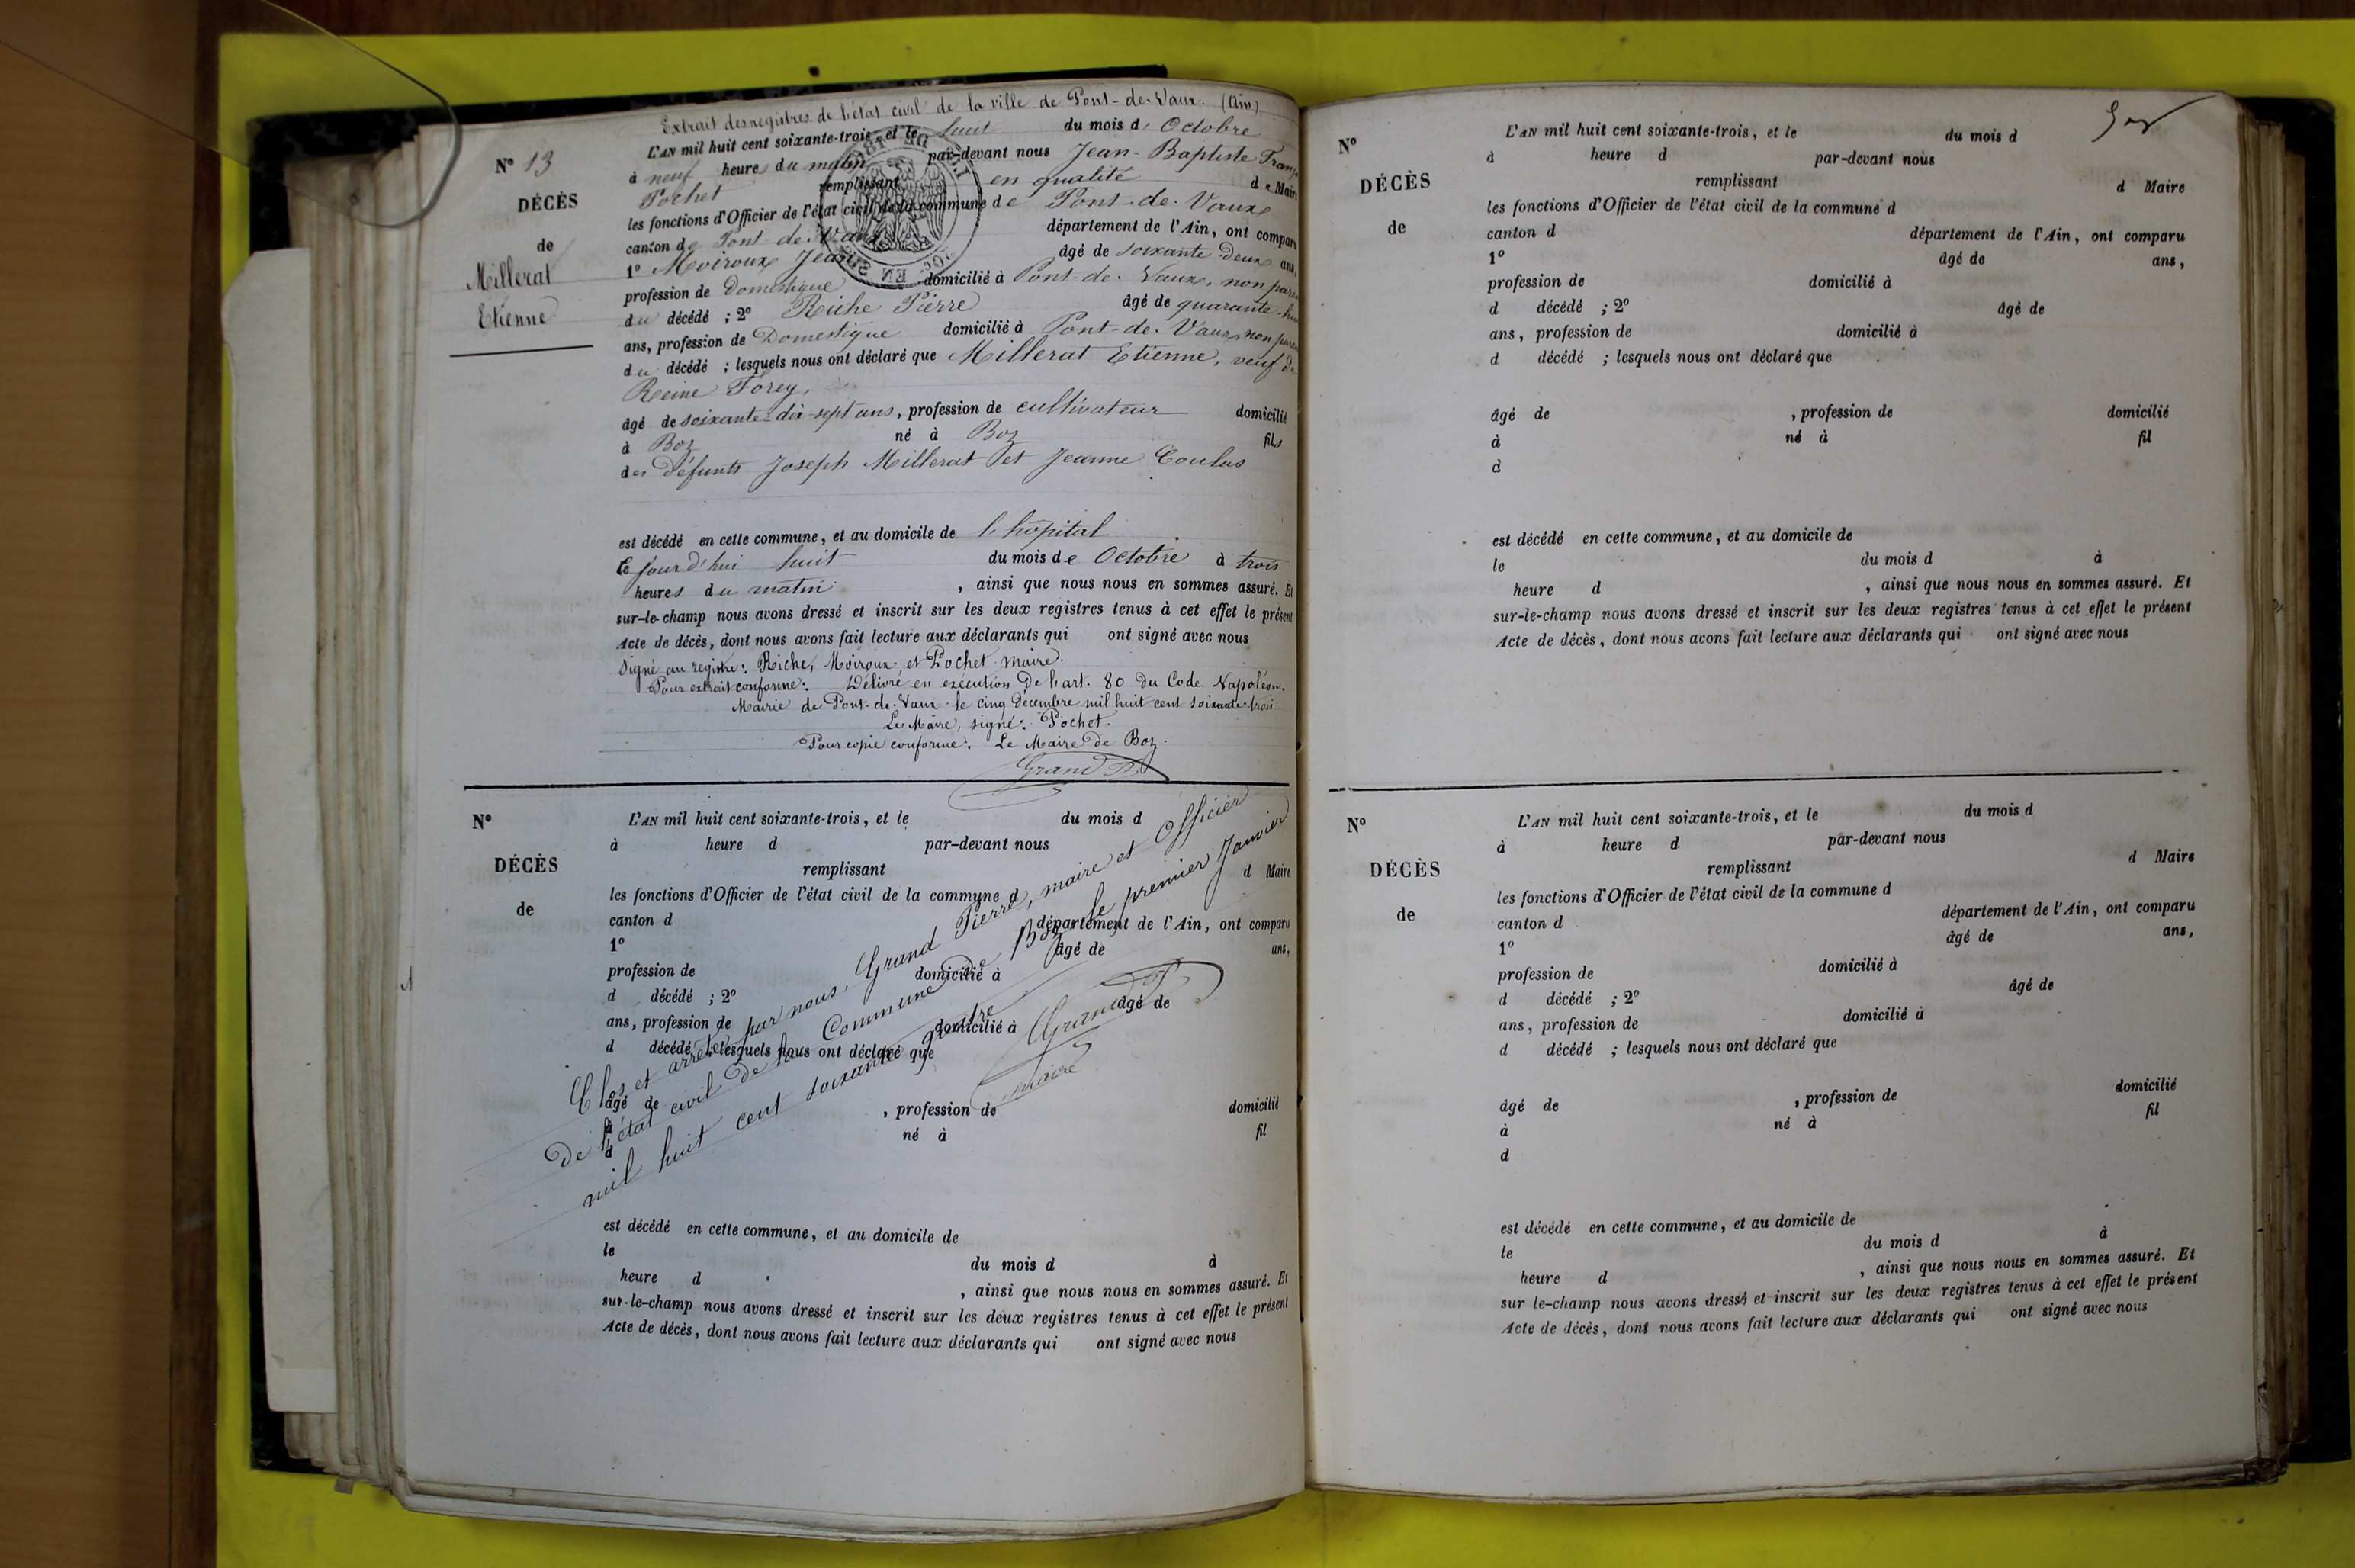 Extrait des registres de l'état civil de la ville de Pont-de-Vaux (Ain)
N° 13
DÉCÈS
de
Millerat
Etienne
L'AN mil huit cent soixante-trois, et le huit du mois d Octobre
à neuf heure du matin par-devant nous Jean-Baptiste
Pochet remplissant en qualité de Maire
les fonctions d'Officier de l'état civil de la commune de Pont-de-Vaux
canton de Pont-de-Vaux département de l'Ain, ont comparu
1° Moiroux Jean âgé de soixante-deux ans,
profession de Domestique domicilié à Pont-de-Vaux, non parent
du décédé ; 2° Riche Pierre âgé de quarante-
ans, profession de Domestique domicilié à Pont-de-Vaux, non parent
du décédé ; lesquels nous ont déclaré que Millerat Etienne, veuf de
Reine Forey,
âgé de soixante-dix-sept ans, profession de cultivateur domicilié
à Boz né à Boz fils
des défunts Joseph Millerat et Jeanne Coulas
est décédé en cette commune, et au domicile de l'hôpital
le jourd'hui huit du mois de Octobre à trois
heures du matin , ainsi que nous nous en sommes assuré. Et
sur-le-champ nous avons dressé et inscrit sur les deux registres tenus à cet effet le présent
Acte de décès, dont nous avons fait lecture aux déclarants qui ont signé avec nous
Signé au registre: Riche, Moiroux, et Pochet maire.
Pour extrait conforme: Délivré en exécution de l'art. 80 du Code Napoléon.
Mairie de Pont-de-Vaux le cinq Décembre mil huit cent soixante-trois
Le Maire, signé: Pochet.
Pour copie conforme: Le Maire de Boz.
Grand P.
N°
DÉCÈS
de
L'AN mil huit cent soixante-trois, et le du mois d
à heure d par-devant nous
remplissant d Maire
les fonctions d'Officier de l'état civil de la commune d
canton d département de l'Ain, ont comparu
1° âgé de ans,
profession de domicilié à
d décédé ; 2° âgé de
ans, profession de domicilié à
d décédé ; lesquels nous ont déclaré que
âgé de , profession de domicilié
à né à fil
d
Clos et arrêté par nous, Grand Pierre, maire et Officier
De l'état civil de la Commune de Boz, le premier Janvier
mil huit cent soixante quatre
Grand P.
maire
est décédé en cette commune, et au domicile de
le du mois d à
heure d , ainsi que nous nous en sommes assuré. Et
sur-le-champ nous avons dressé et inscrit sur les deux registres tenus à cet effet le présent
Acte de décès, dont nous avons fait lecture aux déclarants qui ont signé avec nous
N°
DÉCÈS
de
L'AN mil huit cent soixante-trois, et le du mois d
à heure d par-devant nous
remplissant d Maire
les fonctions d'Officier de l'état civil de la commune d
canton d département de l'Ain, ont comparu
1° âgé de ans,
profession de domicilié à
d décédé ; 2° âgé de
ans, profession de domicilié à
d décédé ; lesquels nous ont déclaré que
âgé de , profession de domicilié
à né à fil
d
est décédé en cette commune, et au domicile de
le du mois d à
heure d , ainsi que nous nous en sommes assuré. Et
sur-le-champ nous avons dressé et inscrit sur les deux registres tenus à cet effet le présent
Acte de décès, dont nous avons fait lecture aux déclarants qui ont signé avec nous
N°
DÉCÈS
de
L'AN mil huit cent soixante-trois, et le du mois d
à heure d par-devant nous
remplissant d Maire
les fonctions d'Officier de l'état civil de la commune d
canton d département de l'Ain, ont comparu
1° âgé de ans,
profession de domicilié à
d décédé ; 2° âgé de
ans, profession de domicilié à
d décédé ; lesquels nous ont déclaré que
âgé de , profession de domicilié
à né à fil
d
est décédé en cette commune, et au domicile de
le du mois d à
heure d , ainsi que nous nous en sommes assuré. Et
sur le-champ nous avons dressé et inscrit sur les deux registres tenus à cet effet le présent
Acte de décès, dont nous avons fait lecture aux déclarants qui ont signé avec nous